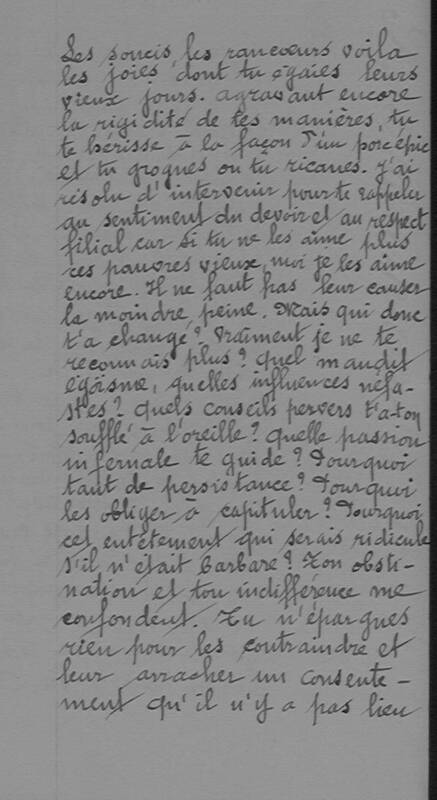 Les soucis, les rancœurs voila
les joies dont tu égaies leurs
vieux jours. Agravant encore
la rigidité de tes manières, tu
te hérisse à la façon d'un porc épic
et tu grognes ou tu ricanes. J'ai
résolu d'intervenir pour te rappeler
au sentiment du devoir et au respect
filial car si tu ne les aime plus
ces pauvres vieux, moi je les aime
encore. Il ne faut pas leur causer
la moindre peine. Mais qui donc
t'a changé? Vraiment je ne te
reconnais plus? Quel maudit
égoïsme, quelles influences néfa-
stes? Quels conseils pervers t'a-t-on
soufflé à l'oreille? Quelle passion
infernale te guide? Pourquoi
tant de persistance? Pourquoi
les obliger à capituler? Pourquoi
cet entêtement qui serais ridicule
s'il n'était barbare? Ton obsti-
nation et ton indifférence me
confondent. Tu n'épargnes
rien pour les contraindre et
leur arracher un consente-
ment qu'il n'y a pas lieu